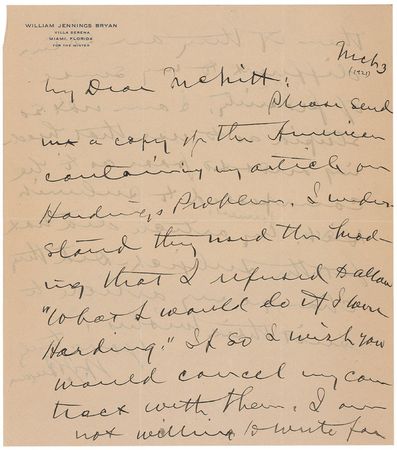 WILLIAM JENNINGS BRYAN
VILLA SERENA
MIAMI, FLORIDA
FOR THE WINTER
Mch 3
(1921)
My Dear
Please send
me a copy of the American
containing my article on
Hardings Problem. I under
stand they used the head-
ing that I refused to allow
"What I would do if I were
Harding." If so I wish you
would cancel my con
tract with them. I am
not willing to write for